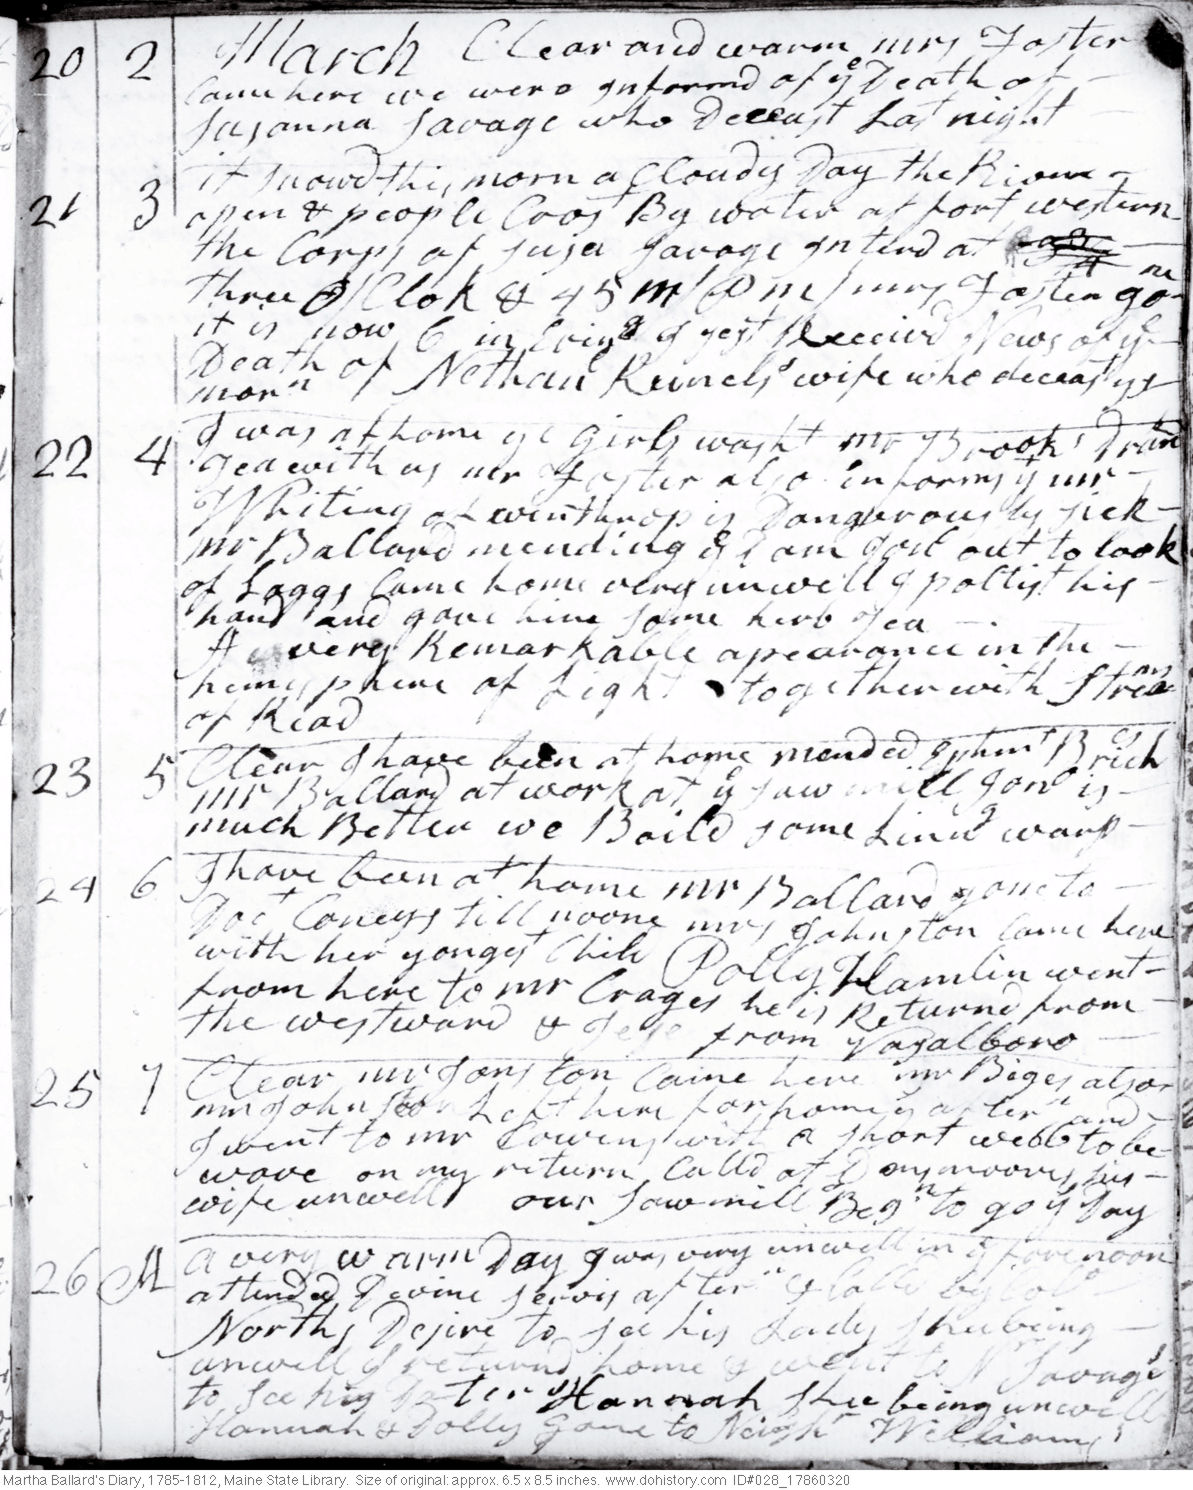 20 2 March Clear and warm mrs Foster
Came here we were informd of ye Death of
Susanna Savage who Deceast Last night
21 3 it snowd this morn a Cloudy Day the River
open & people Cros By water at fort western
the Corps of Susa Savage Interd at
three O/Clok & 45 m/ P m/ mrs Foster go ne
it is now 6 in Evings I yest Receivd News of ye
Death of Nethan Kewnels wife who deceast ys
morn
22 4 I was at home ye girls washt mr Brooks Dran
Tea with us mr Foster also informs yt mr
Whiting of winthrop is Dangerously sick
mr Ballard mending ye Dam Got out to look
of Loggs Came home very unwell I poltist his
hand and gave him some herb Tea
A very Remarkable apearance in the
hemsphere of Light together with Streams
of Read
23 5 Clear I have been at home mended Ephm Briches
mr Ballard at work at ye saw mill Jona is
much Better we Boild some Linng warp
24 6 I have been at home mr Ballard gone to
Doct Conerys till noone mrs Johnston Came here
with her yongest Child Polly Hamlin went
from here to mr Crages he is Returnd from
the westward & from Vasalboro
25 7 Clear mr Jonston Came here mr Biges also
mr Johnston Left here for home ys aftern and
I went to mr Cowens with a short webb to be
wove on my return Calld at Densmoores his
wife unwell our Sawmill Begn to go ys Day
26 A very warm Day I was very unwell in ye forenoon
attended Devine servis aftern & Calld by Colo
Norths Desire to see his Lady Shee being
unwell I returnd home & went to Savages
to see his Daters Hannah Shee being unwell
Hannah & Dolly Gone to Neighr Williams
Martha Ballard's Diary, 1785-1812, Maine State Library. Size of original: approx. 6.5 x 8.5 inches. www.dohistory.com ID#028_17860320